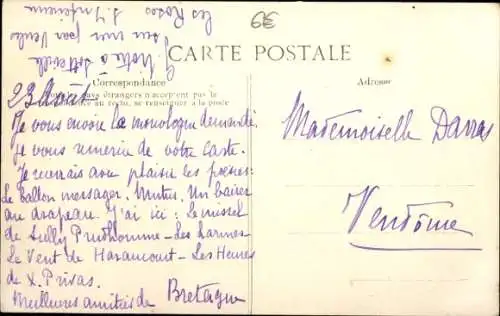 6E
CARTE POSTALE
Correspondance
Tous les pays étrangers n'acceptent pas la
au recto, se renseigner à la poste
Adresse
23 Août
Je vous envoie la monologue demandé.
Je vous remercie de votre carte.
Je recevrais avec plaisir les poésies:
Le ballon messager. Un baiser
au drapeau. J'ai ici : le missel
de Sully Prudhomme - Les Larmes
Le Vent de Haraucourt - Les Heures
de X. Privas.
Meilleures amitiés de Bretagne
Mademoiselle Darras
Vendôme
à Sotteville
sur mer par Veules
les Roses S. Inférieure